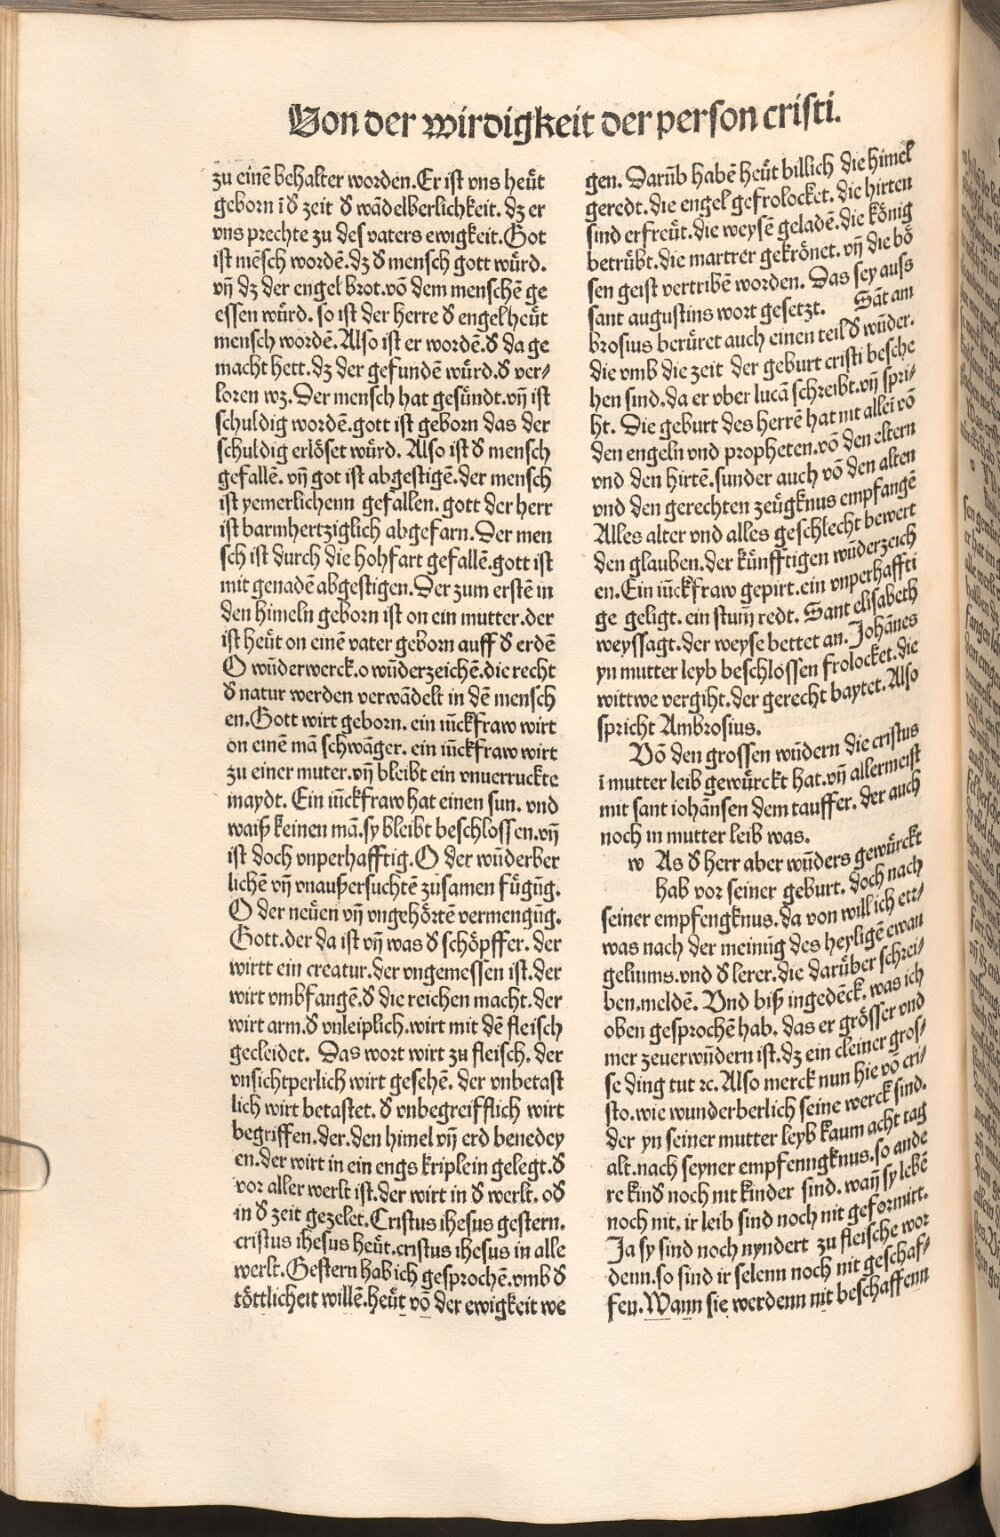 Von der wirdigkeit der person cristi.
zu einē behalter worden. Er ist vns heüt
geborn ī ď zeit ď wādelberlichkeit. dz er
vns prechte zu des vaters ewigkeit. Got
ist mēsch wordē. dz ď mensch gott würd.
vn̄ dz der engel brot. vō dem menschē ge
essen würd. so ist der herre ď engel heüt
mensch wordē. Also ist er wordē. ď da ge
macht hett. dz der gefundē würd. ď ver⸗
loren wz. Der mensch hat gesündt. vn̄ ist
schuldig wordē. gott ist geborn das der
schuldig erlöset würd. Also ist ď mensch
gefallē. vn̄ got ist abgestigē. der mensch
ist yemerlichenn gefallen. gott der herr
ist barmhertziglich abgefarn. Der men
sch ist durch die hohfart gefallē. gott ist
mit genadē abgestigen. Der zum erstē in
den himeln geborn ist on ein mutter. der
ist heüt on einē vater geborn auff ď erdē
O wūderwerck. o wūderzeichē. die recht
ď natur werden verwādelt in dē mensch
en. Gott wirt geborn. ein iūckfraw wirt
on einē mā schwāger. ein iūckfraw wirt
zu einer muter. vn̄ bleibt ein vnuerruckte
maydt. Ein iūckfraw hat einen sun. vnd
waiß keinen mā. sy bleibt beschlossen. vn̄
ist doch vnperhafftig. O der wūderber
lichē vn̄ vnaußersuchtē zusamen fügūg.
O der neüen vn̄ vngehörtē vermengūg.
Gott. der da ist vn̄ was ď schöpffer. der
wirtt ein creatur. der vngemessen ist. der
wirt vmbfangē. ď die reichen macht. der
wirt arm. ď vnleiplich. wirt mit dē fleisch
gecleidet. Das wort wirt zu fleisch. der
vnsichtperlich wirt gesehē. der vnbetast
lich wirt betastet. ď vnbegreifflich wirt
begriffen. der. den himel vn̄ erd benedey
en. der wirt in ein engs kriplein gelegt. ď
vor aller werlt ist. der wirt in ď werlt. oď
in ď zeit gezelet. Cristus ihesus gestern.
cristus ihesus heüt. cristus ihesus in alle
werlt. Gestern hab ich gesprochē. vmb ď
töttlicheit willē. heüt vō der ewigkeit we
gen. Darūb habē heüt billich die himel
geredt. die engel gefrolocket. die hirten
sind erfreüt. die weysē geladē. die könig
betrübt. die martrer gekrönet. vn̄ die bö
sen geist vertribē worden. Das sey auss
sant augustins wort gesetzt. Sāt am
brosius berüret auch einen teil ď wūder.
die vmb die zeit der geburt cristi besche
hen sind. da er vber lucā schreibt. vn̄ spri⸗
ht. Die geburt des herrē hat nit allei vō
den engeln vnd propheten. vō den eltern
vnd den hirtē. sunder auch vō den alten
vnd den gerechten zeügknus empfangē
Alles alter vnd alles geschlecht bewert
den glauben. der künfftigen wūderzeich
en. Ein iūckfraw gepirt. ein vnperhaffti
ge geligt. ein stum̄ redt. Sant elisabeth
weyssagt. der weyse bettet an. Johānes
yn mutter leyb beschlossen frolocket. die
wittwe vergiht. der gerecht baytet. Also
spricht Ambrosius.
Vō den grossen wūdern die cristus
ī mutter leib gewürckt hat. vn̄ allermeist
mit sant iohānsen dem tauffer. der auch
noch in mutter leib was.
w As ď herr aber wūders gewürckt
hab vor seiner geburt. doch nach
seiner empfengknus. da von will ich ett⸗
was nach der meinūg des heyligē ewan
geliums. vnd ď lerer. die darüber schrei⸗
ben. meldē. Vnd biß ingedēck. was ich
oben gesprochē hab. das er grösser vnd
mer zeuerwūdern ist. dz ein cleiner gros⸗
se ding tut ꝛc. Also merck nun hie vō cri⸗
sto. wie wunderberlich seine werck sind.
der yn seiner mutter leyb kaum acht tag
alt. nach seyner empfenngknus. so ande
re kind noch nit kinder sind. wan̄ sy lebē
noch nit. ir leib sind noch nit geformirt.
Ja sy sind noch nyndert zu fleische wor
denn. so sind ir selenn noch nit geschaf⸗
fen. Wann sie werdenn nit beschaffenn